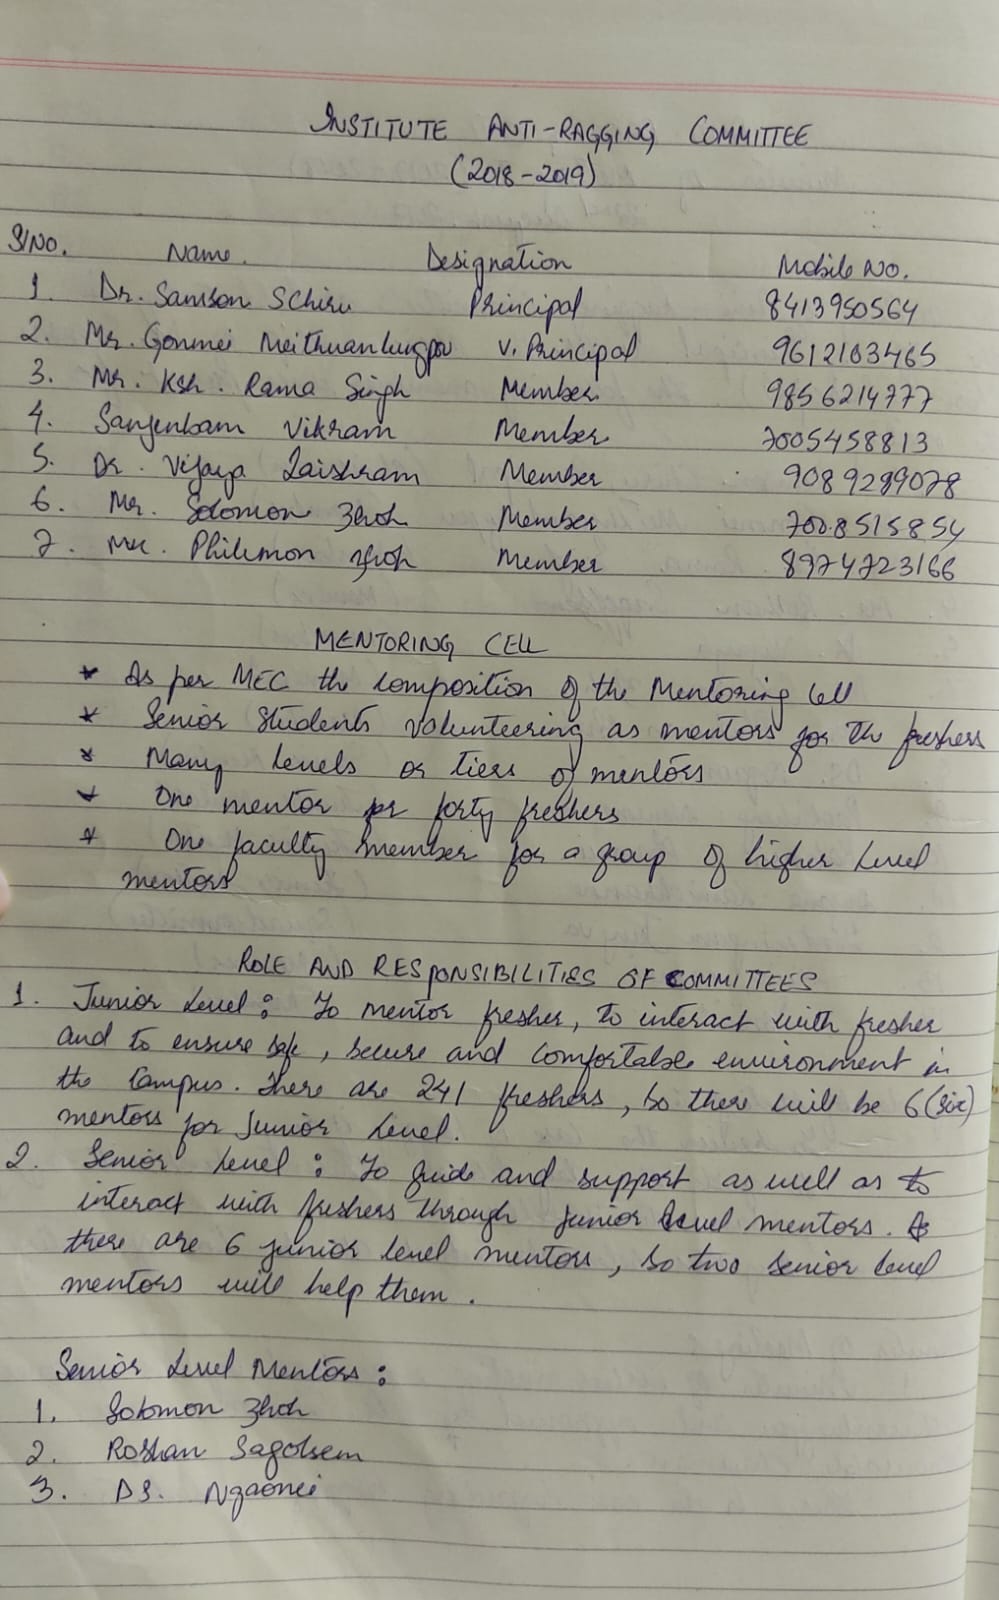 INSTITUTE ANTI-RAGGING COMMITTEE
(2018-2019)
S/No. Name. Designation Mobile No.
1. Dr. Samson Schiru Principal 8413950564
2. Mr. Gonmei Meithuanlungpou V. Principal 9612103465
3. Mr. Ksh. Rama Singh Member 9856214777
4. Sanjenbam Vikram Member 7005458813
5. Dr. Vijaya Laishram Member 9089289078
6. Mr. Solomon Zhoh Member 7008515854
7. Mr. Philemon Zhoh Member 8974723166
MENTORING CELL
* As per MEC the composition of the Mentoring Cell
* Senior Students volunteering as mentors for the freshers
* Many levels or tiers of mentors
* One mentor per forty freshers
* One faculty member for a group of higher level
mentors
ROLE AND RESPONSIBILITIES OF COMMITTEES
1. Junior Level : To mentor fresher, to interact with fresher
and to ensure safe, secure and comfortable environment in
the campus. There are 241 freshers, so there will be 6 (six)
mentors for Junior Level.
2. Senior Level : To guide and support as well as to
interact with freshers through junior level mentors. As
there are 6 junior level mentors, so two senior level
mentors will help them.
Senior Level Mentors :
1. Solomon Zhoh
2. Roshan Sagolsem
3. DS. Ngaonei